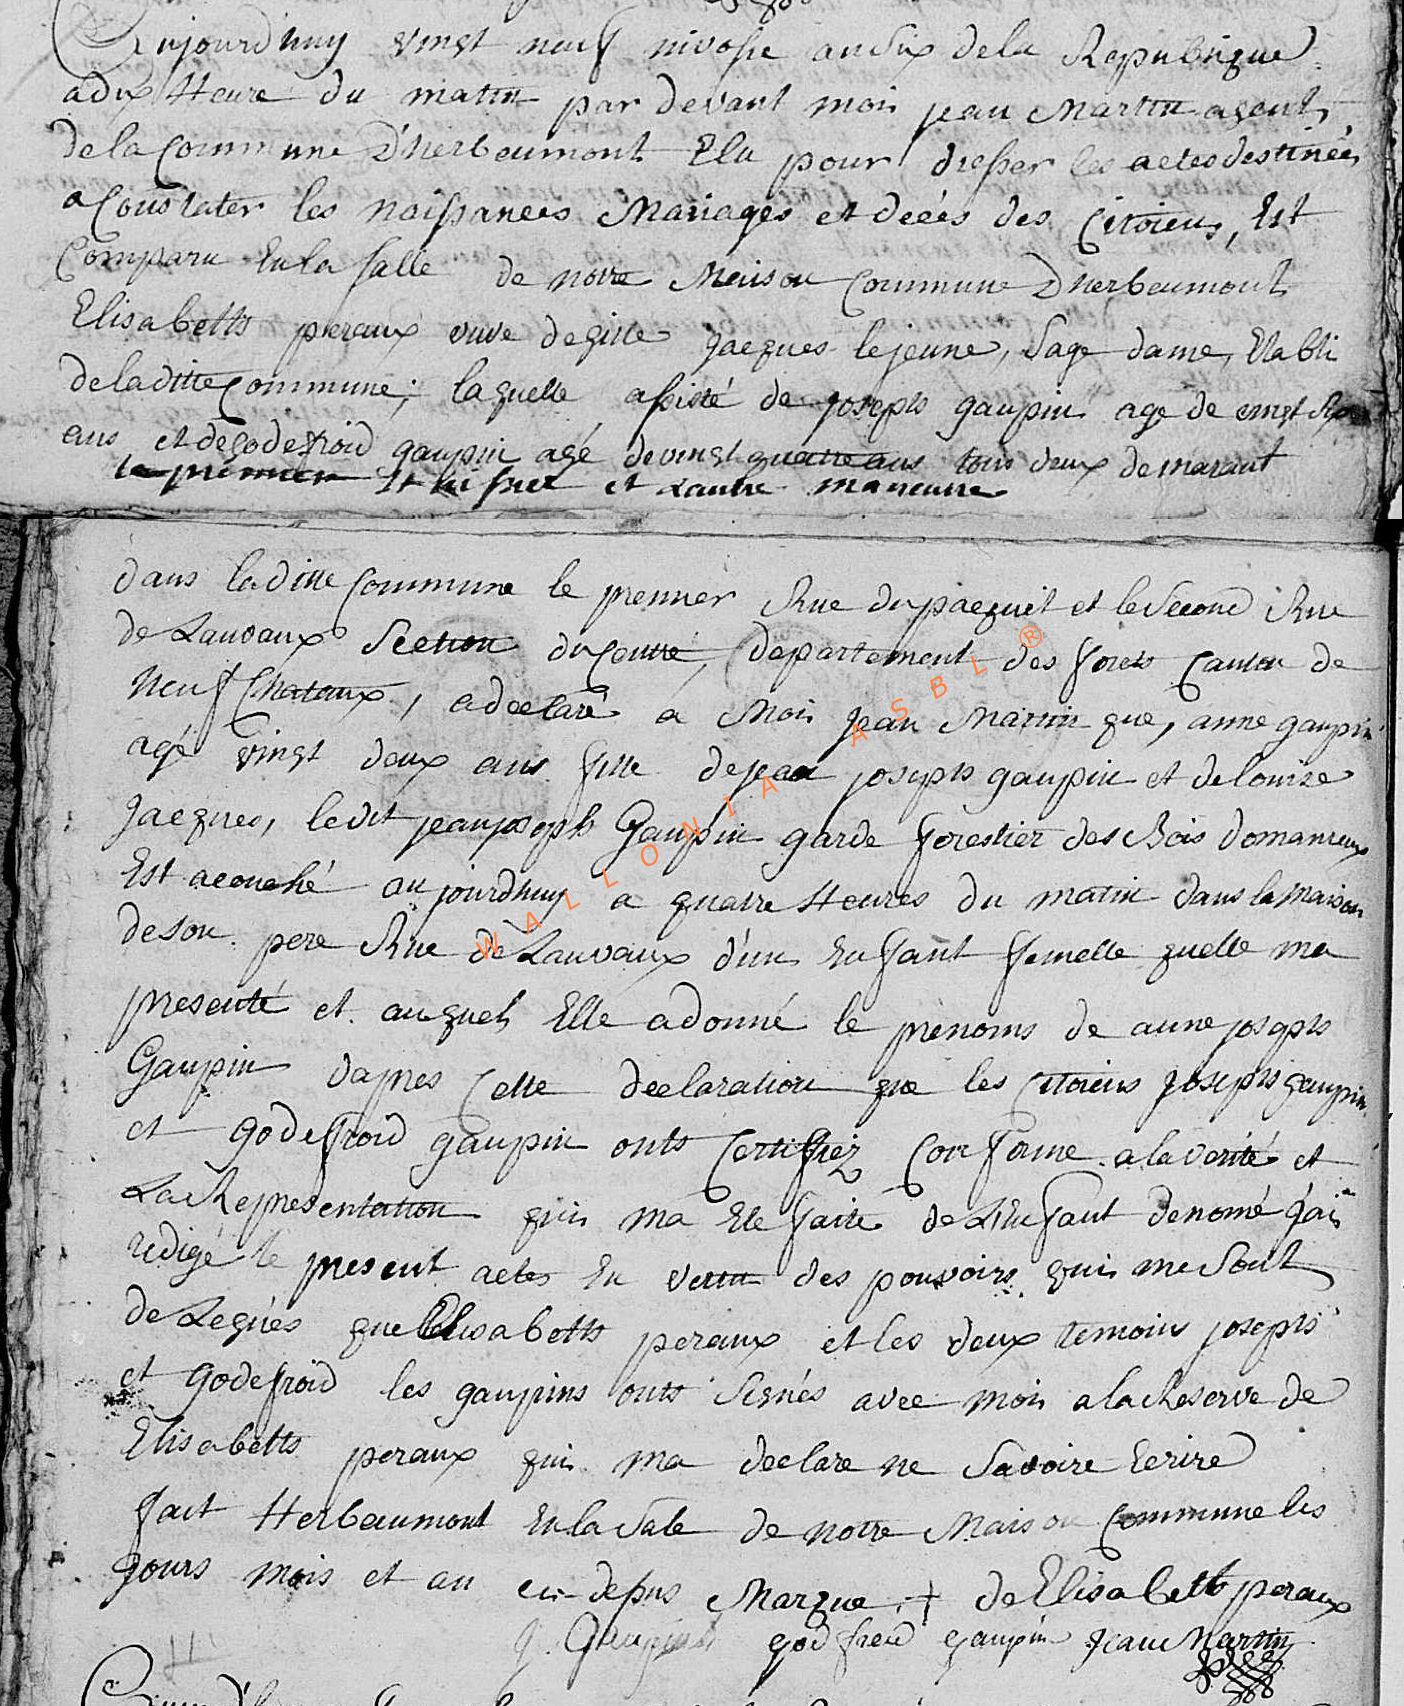 Aujourd'huy vingt neuf nivosse an six de la Republique
a dix Heure du matin par devant moi jean Martin agent
de la Commune D'herbeumont Elu pour dresser les actes destinées
a Constater les naissances Mariages et décés des Citoiens, Est
Comparu En la salle de notre Maison Commune Dherbeumont
Elisabeth peraux vuve de gille Jacques lejeune, sage dame, Etabli
de laditte Commune; laquelle assisté de joseph gaupin age de vingt six
ans et de godefroid gaupin agé de vingt quatre ans tous deux demeurant
le premier et l'autre maneuvre
dans laditte Commune le premier Rue du pacquit et le second Rue
de Lauvaux Section du Centre, departement des forets Canton de
neuf Chateaux, a declaré a Moi Jean Martin que, anne gaupin
agé vingt deux ans fille de jean joseph gaupin et de louise
Jacques, ledit jean joseph Gaupin garde forestier des Bois domaneaux
Est acouché aujourdhuy a quatre Heures du matin dans la Maison
de son pere Rue de Lauvaux d'un Enfant femelle quelle ma
presenté et auquel Elle a donné le prénoms de anne joseph
Gaupin dapres Cette declaration que les Citoiens Joseph gaupin
et godefroid gaupin onts Certifiéz Conforme a la verité et
La Representation qui ma Eté faite de L'Enfant denomé j'ai
redigé le present actes En vertu des pouvoirs qui me sont
deLegués que Elisabeth peraux et les deux temoins joseph
et godefroid les gaupins onts signés avec moi a la Reserve de
Elisabeth peraux qui ma declare ne savoire Ecrire
fait Herbeumont En la Sale de notre Maison Commune les
jours mois et an ci-dessus Marque + de Elisabeth peraux
J. Gaupin godfroid gaupin Jean Martin
WALLONIA ASBL ®